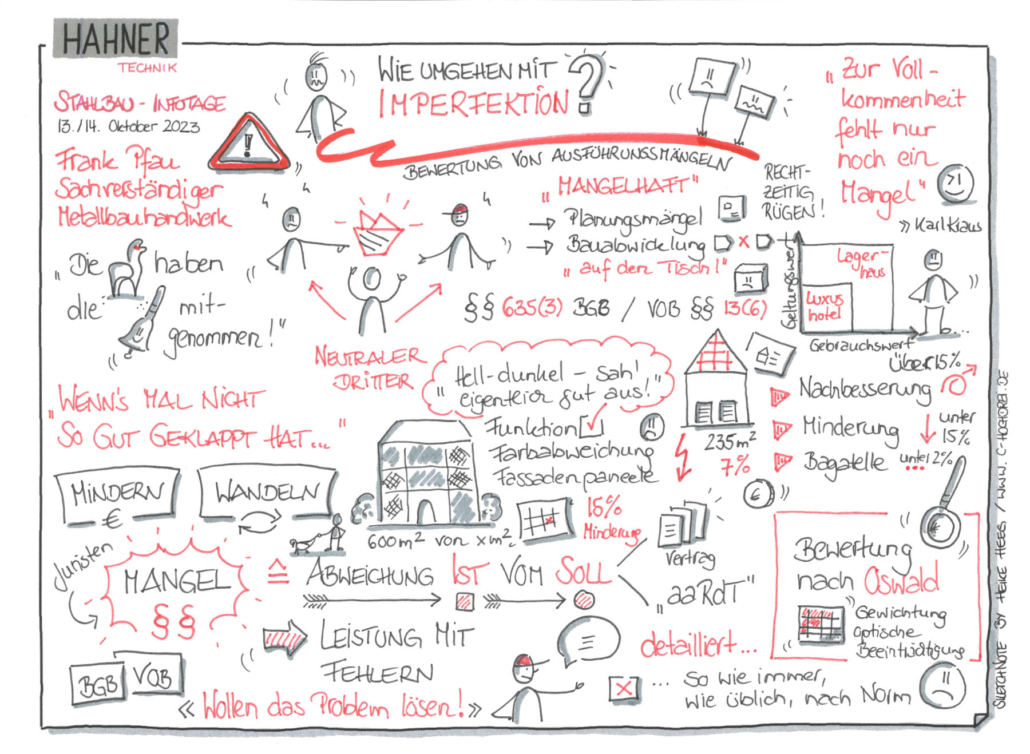 HAHNER
TECHNIK
STAHLBAU - INFOTAGE
13./14. Oktober 2023
Frank Pfau
Sachverständiger
Metallbauhandwerk
WIE UMGEHEN MIT
IMPERFEKTION?
BEWERTUNG VON AUSFÜHRUNGSMÄNGELN
„Zur Voll-
kommenheit
fehlt nur
noch ein
Mangel"
» Karl Klaus
„MANGELHAFT"
→ Planungsmängel
→ Bauabwicklung
„auf den Tisch!"
RECHT-
ZEITIG
RÜGEN!
§§ 635(3) BGB / VOB §§ 13(6)
„Die haben
die mit-
genommen!"
NEUTRALER
DRITTER
Geltungswert
Lager-
haus
Luxus
hotel
Gebrauchswert
über 15%
Nachbesserung
Minderung
unter
15%
Bagatelle
unter 2%
„WENN'S MAL NICHT
SO GUT GEKLAPPT HAT..."
„Hell-dunkel - sah'
eigentlich gut aus!"
Funktion
Farbabweichung
Fassadenpaneele
235 m²
7%
€
15%
Minderung
600 m² von x m²
MINDERN
€
WANDELN
Juristen
MANGEL
§§
≙ ABWEICHUNG IST VOM SOLL
Vertrag
„aaRdT"
LEISTUNG MIT
FEHLERN
BGB
VOB
« Wollen das Problem lösen! »
detailliert...
... so wie immer,
wie üblich, nach Norm
Bewertung
nach Oswald
Gewichtung
optische
Beeinträchtigung
BY HEIKE HEEG / WWW. C-HOCHDREI.DE